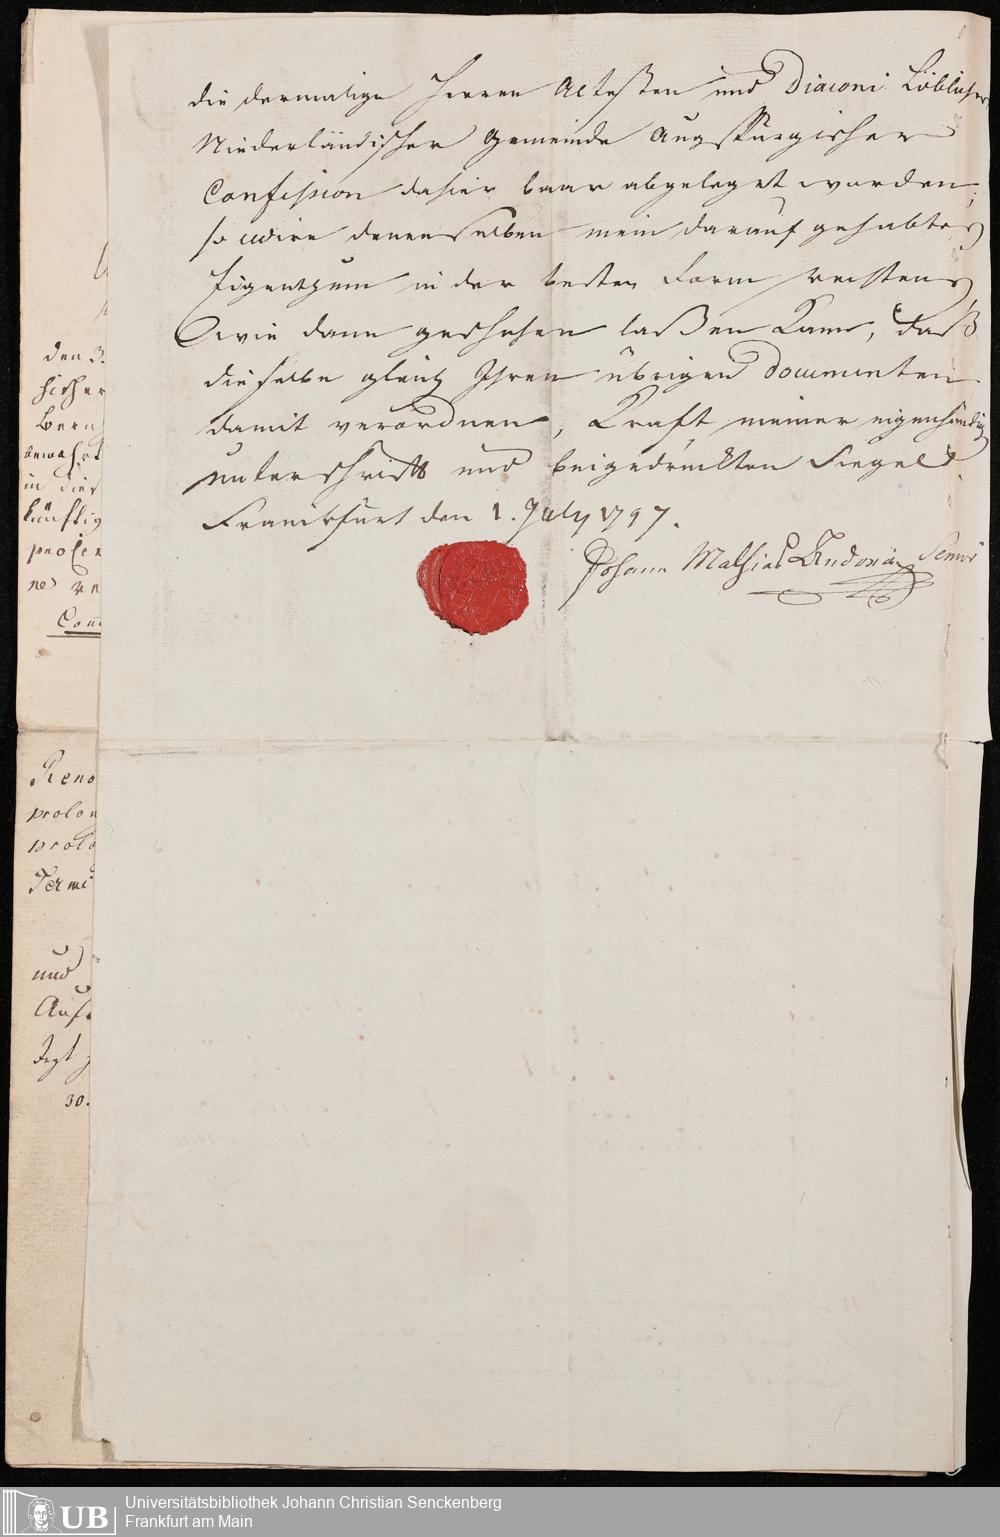 die dermalige Herren Aeltesten und Diaconi Löblicher
Niederländischer Gemeinde Augspurgischer
Confession dahier baar abgeleget worden;
so cedire denenselben mein darauf gehabtes
Eigenthum in der besten Form rechtens,
wie dann geschehen laßen kann, daß
dieselbe gleich Ihren übrigen Documenten
damit verordnen, Kraft meiner eigenhändig
unterschrift und beigedruckten Siegels
Franckfurt den 1. July 1797.
Johann Mathias Andreae Senior
den 3.
hisher
Bern
bewahrt
in dies
künftig
prolon
ne
Con
Reno
prolon
prolo
Termi
und
Auf
Jezt
30.
Universitätsbibliothek Johann Christian Senckenberg
Frankfurt am Main
UB